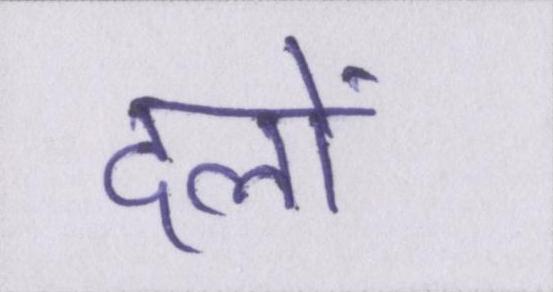 दलों